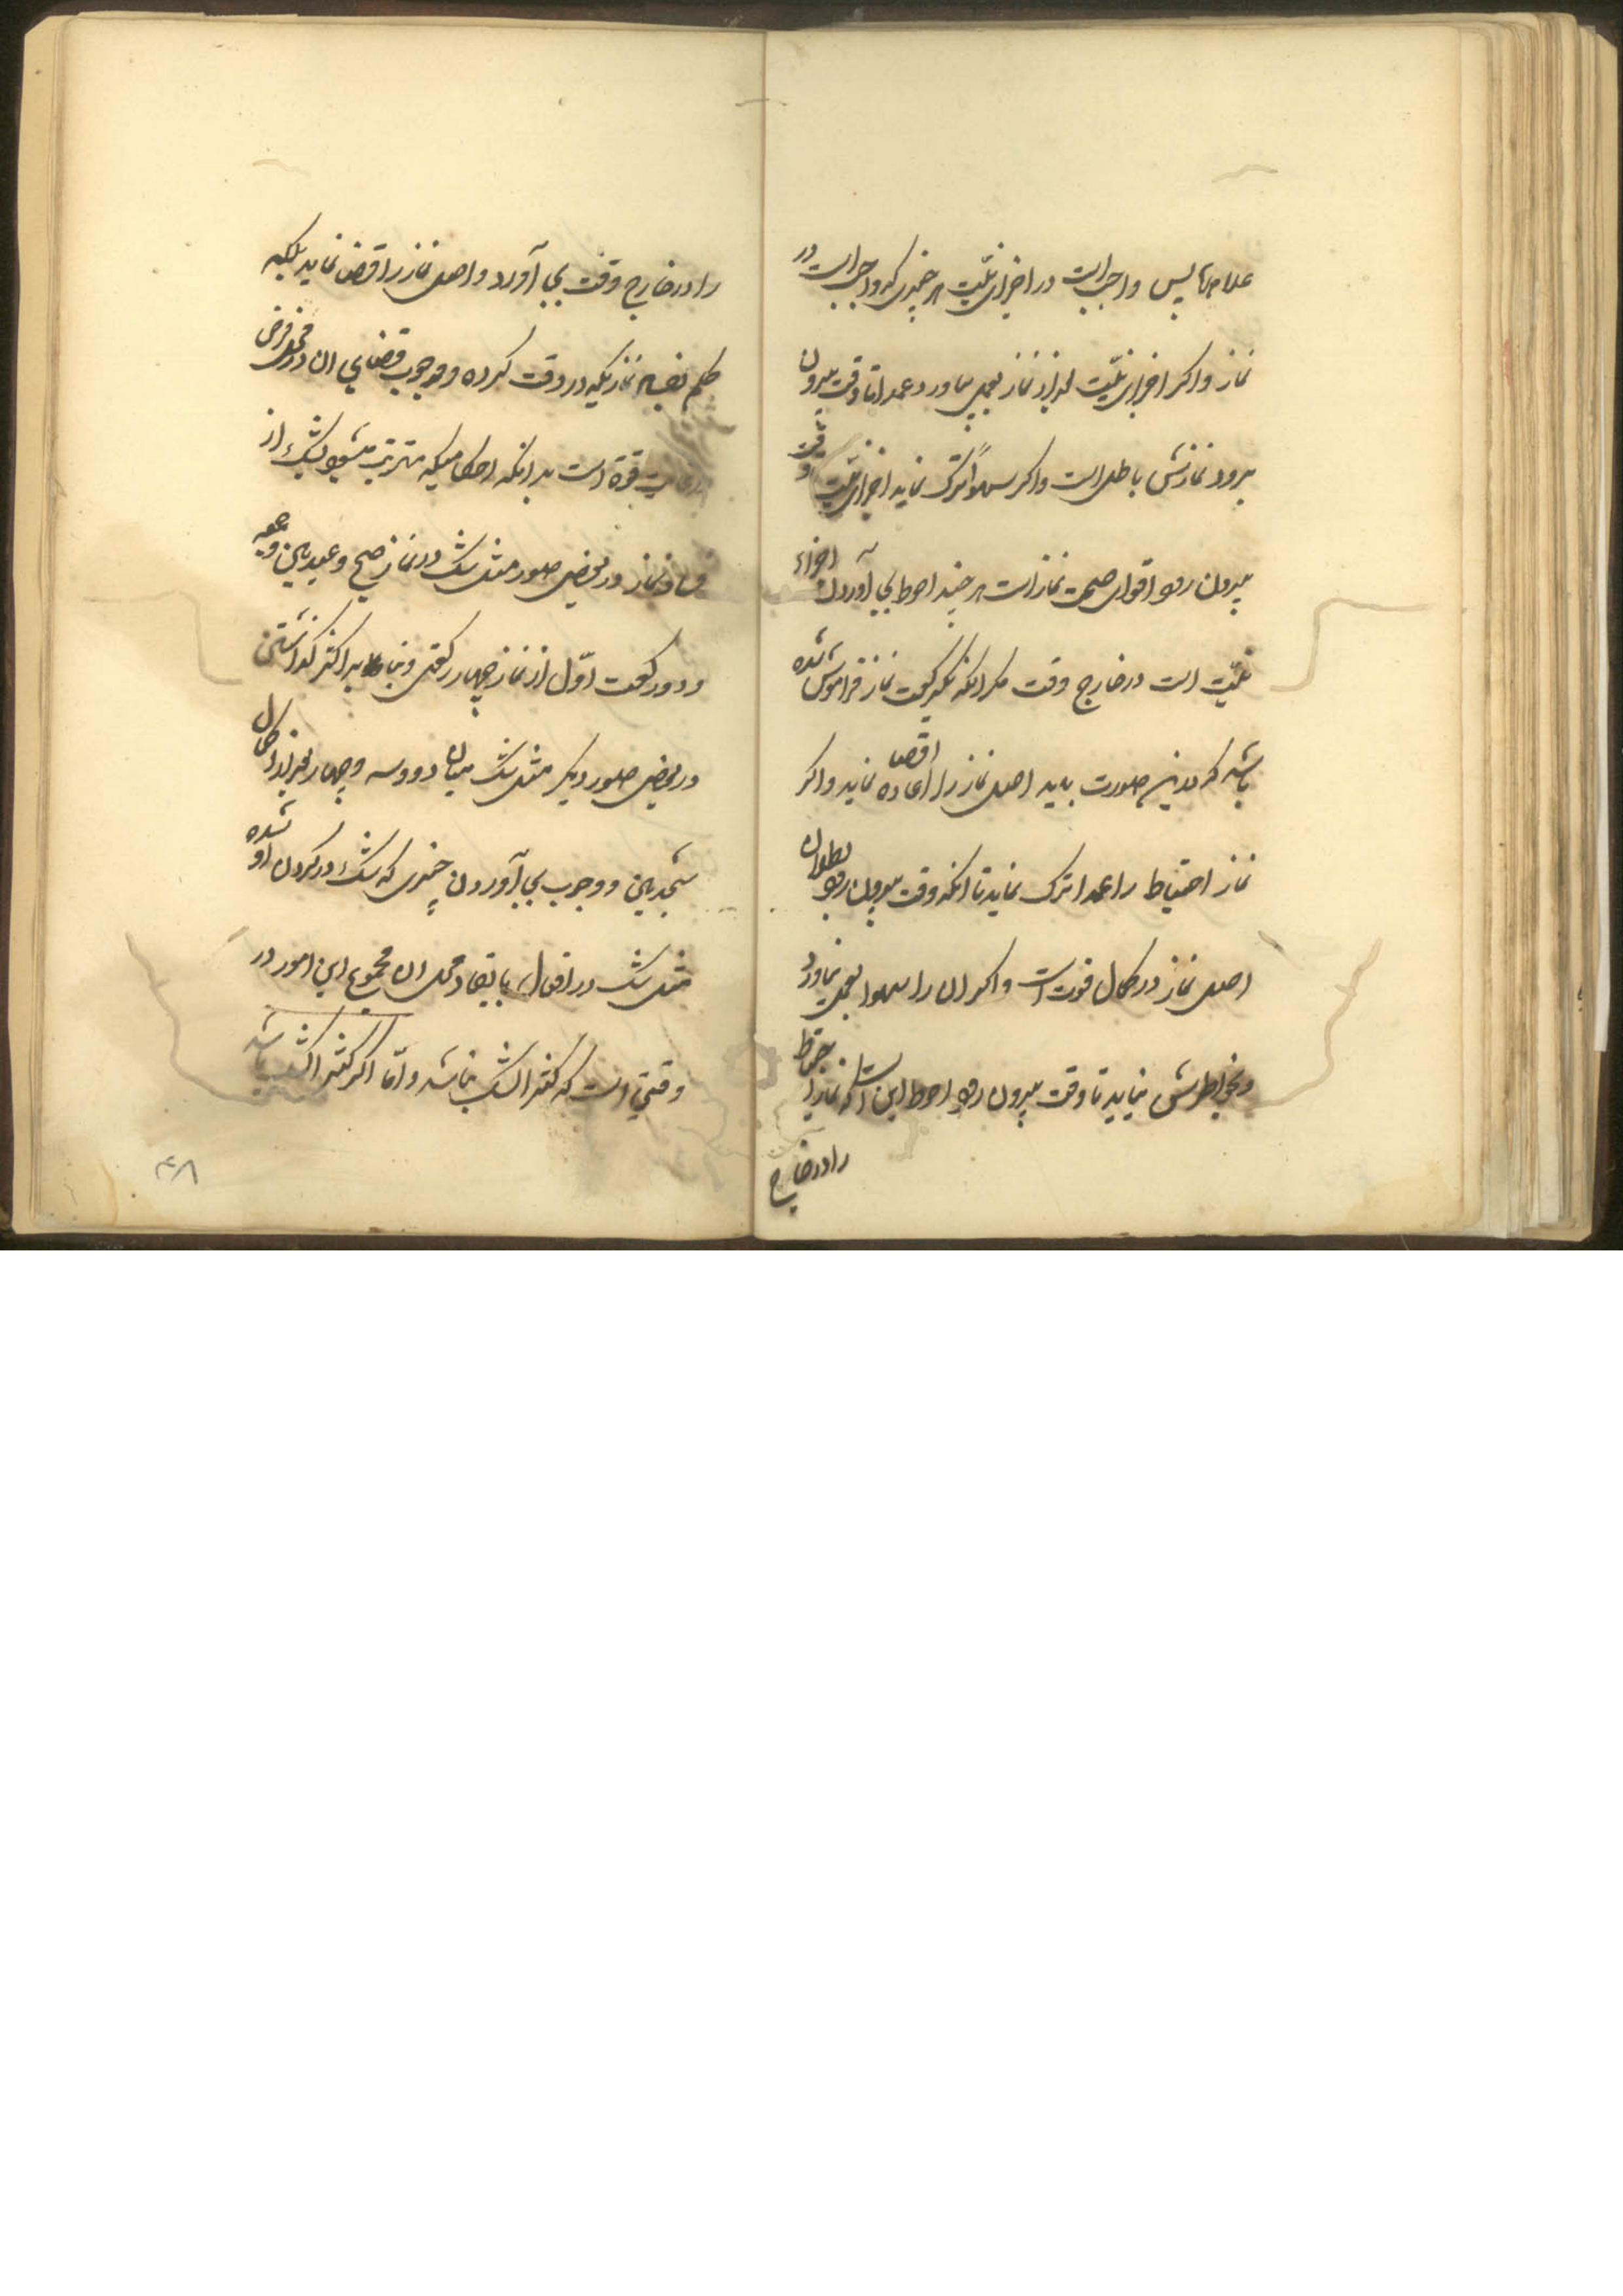 پس واجبست در اجزای منسیه هر چیزی که واجبست در
نماز و اکر اجزای منسیه بعد از نماز بعمل نیاورد عمدا تا وقت بیرون
برود نمازش باطل است و اکر سهوا ترک نماید اجزای منسیه وقت
بیرون رود اقوی صحت نماز است هر چند احوط بجا آوردن اجزاء
منسیه است در خارج وقت مکر آنکه یکرکعت نماز فراموش شده
باشد که درین صورت باید اصل نماز را اعاده قضا نماید و اکر
نماز احتیاط را عمدا ترک نماید تا آنکه وقت بیرون رود بطلان
اصل نماز در کمال قوت است و اکر ان را سهوا بعمل نیاورد
و بخاطرش نیاید تا وقت بیرون رود احوط این است که نماز احتیاط
را در خارج
را در خارج وقت بجا آورد و اصل نماز را قضا نماید بلکه
حکم بفساد نمازیکه در وقت کرده و وجوب قضای ان در فرض
قوة است بدانکه احکامیکه مترتب میشود بشک از
فساد نماز در بعض صور مثل شک در نماز صبح و عیدین و جمعه
و دو رکعت اوّل از نماز چهار رکعتی و بنا بر اکثر کذاشتن
در بعض صور دیکر مثل شک میان دو و سه و چهار بعد از اکمال
سجدتین و وجوب بجا آوردن چیزی که شک در کردن او شده
مثل شک در افعال با بقاء محل ان مجموع این امور در
وقتی است که کثیر الشک نباشد و امّا اکر کثیر الشک باشد